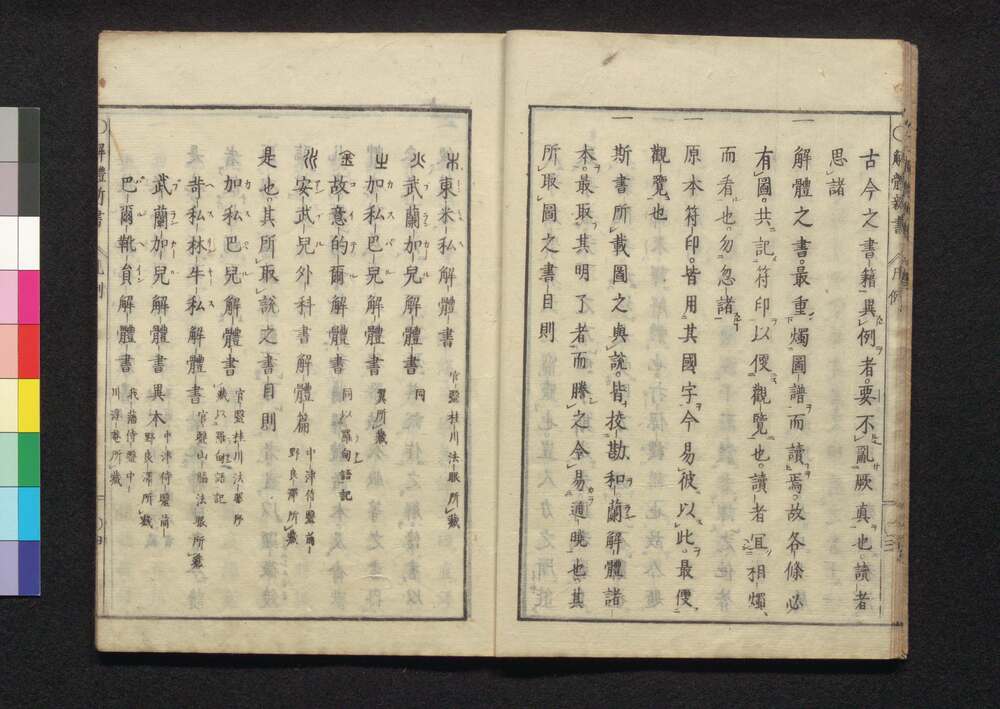 古今之書籍異例者。要不亂厥真也。讀者
思諸
一
解體之書。最重燭圖譜而讀焉。故各條必
有圖。共記符印以便觀覽也。讀者宜相燭
而看也。勿忽諸
一
原本符印。皆用其國字今易彼以此。最便
觀覽也
一
斯書所載圖之與說。皆挍勘和蘭解體諸
本。最取其明了者而謄之令易通曉也。其
所取圖之書目則
木東米私解體書 官醫桂川法眼所藏
火武蘭加兒解體書 同
土加私巴兒解體書 翼所藏
金故意的爾解體書 同以羅甸語記
水安武兒外科書解體篇 中津侍醫前野良澤所藏
是也。其所取說之書目則
加私巴兒解體書 官醫桂川法眼所藏以羅甸語記
奇私林牛私解體書 官醫山脇法眼所藏
武蘭加兒解體書異本 中津侍醫前野良澤所藏
巴爾靴員解體書 我藩侍醫中川淳庵所藏
解體新書
凡例
解體新書
凡例